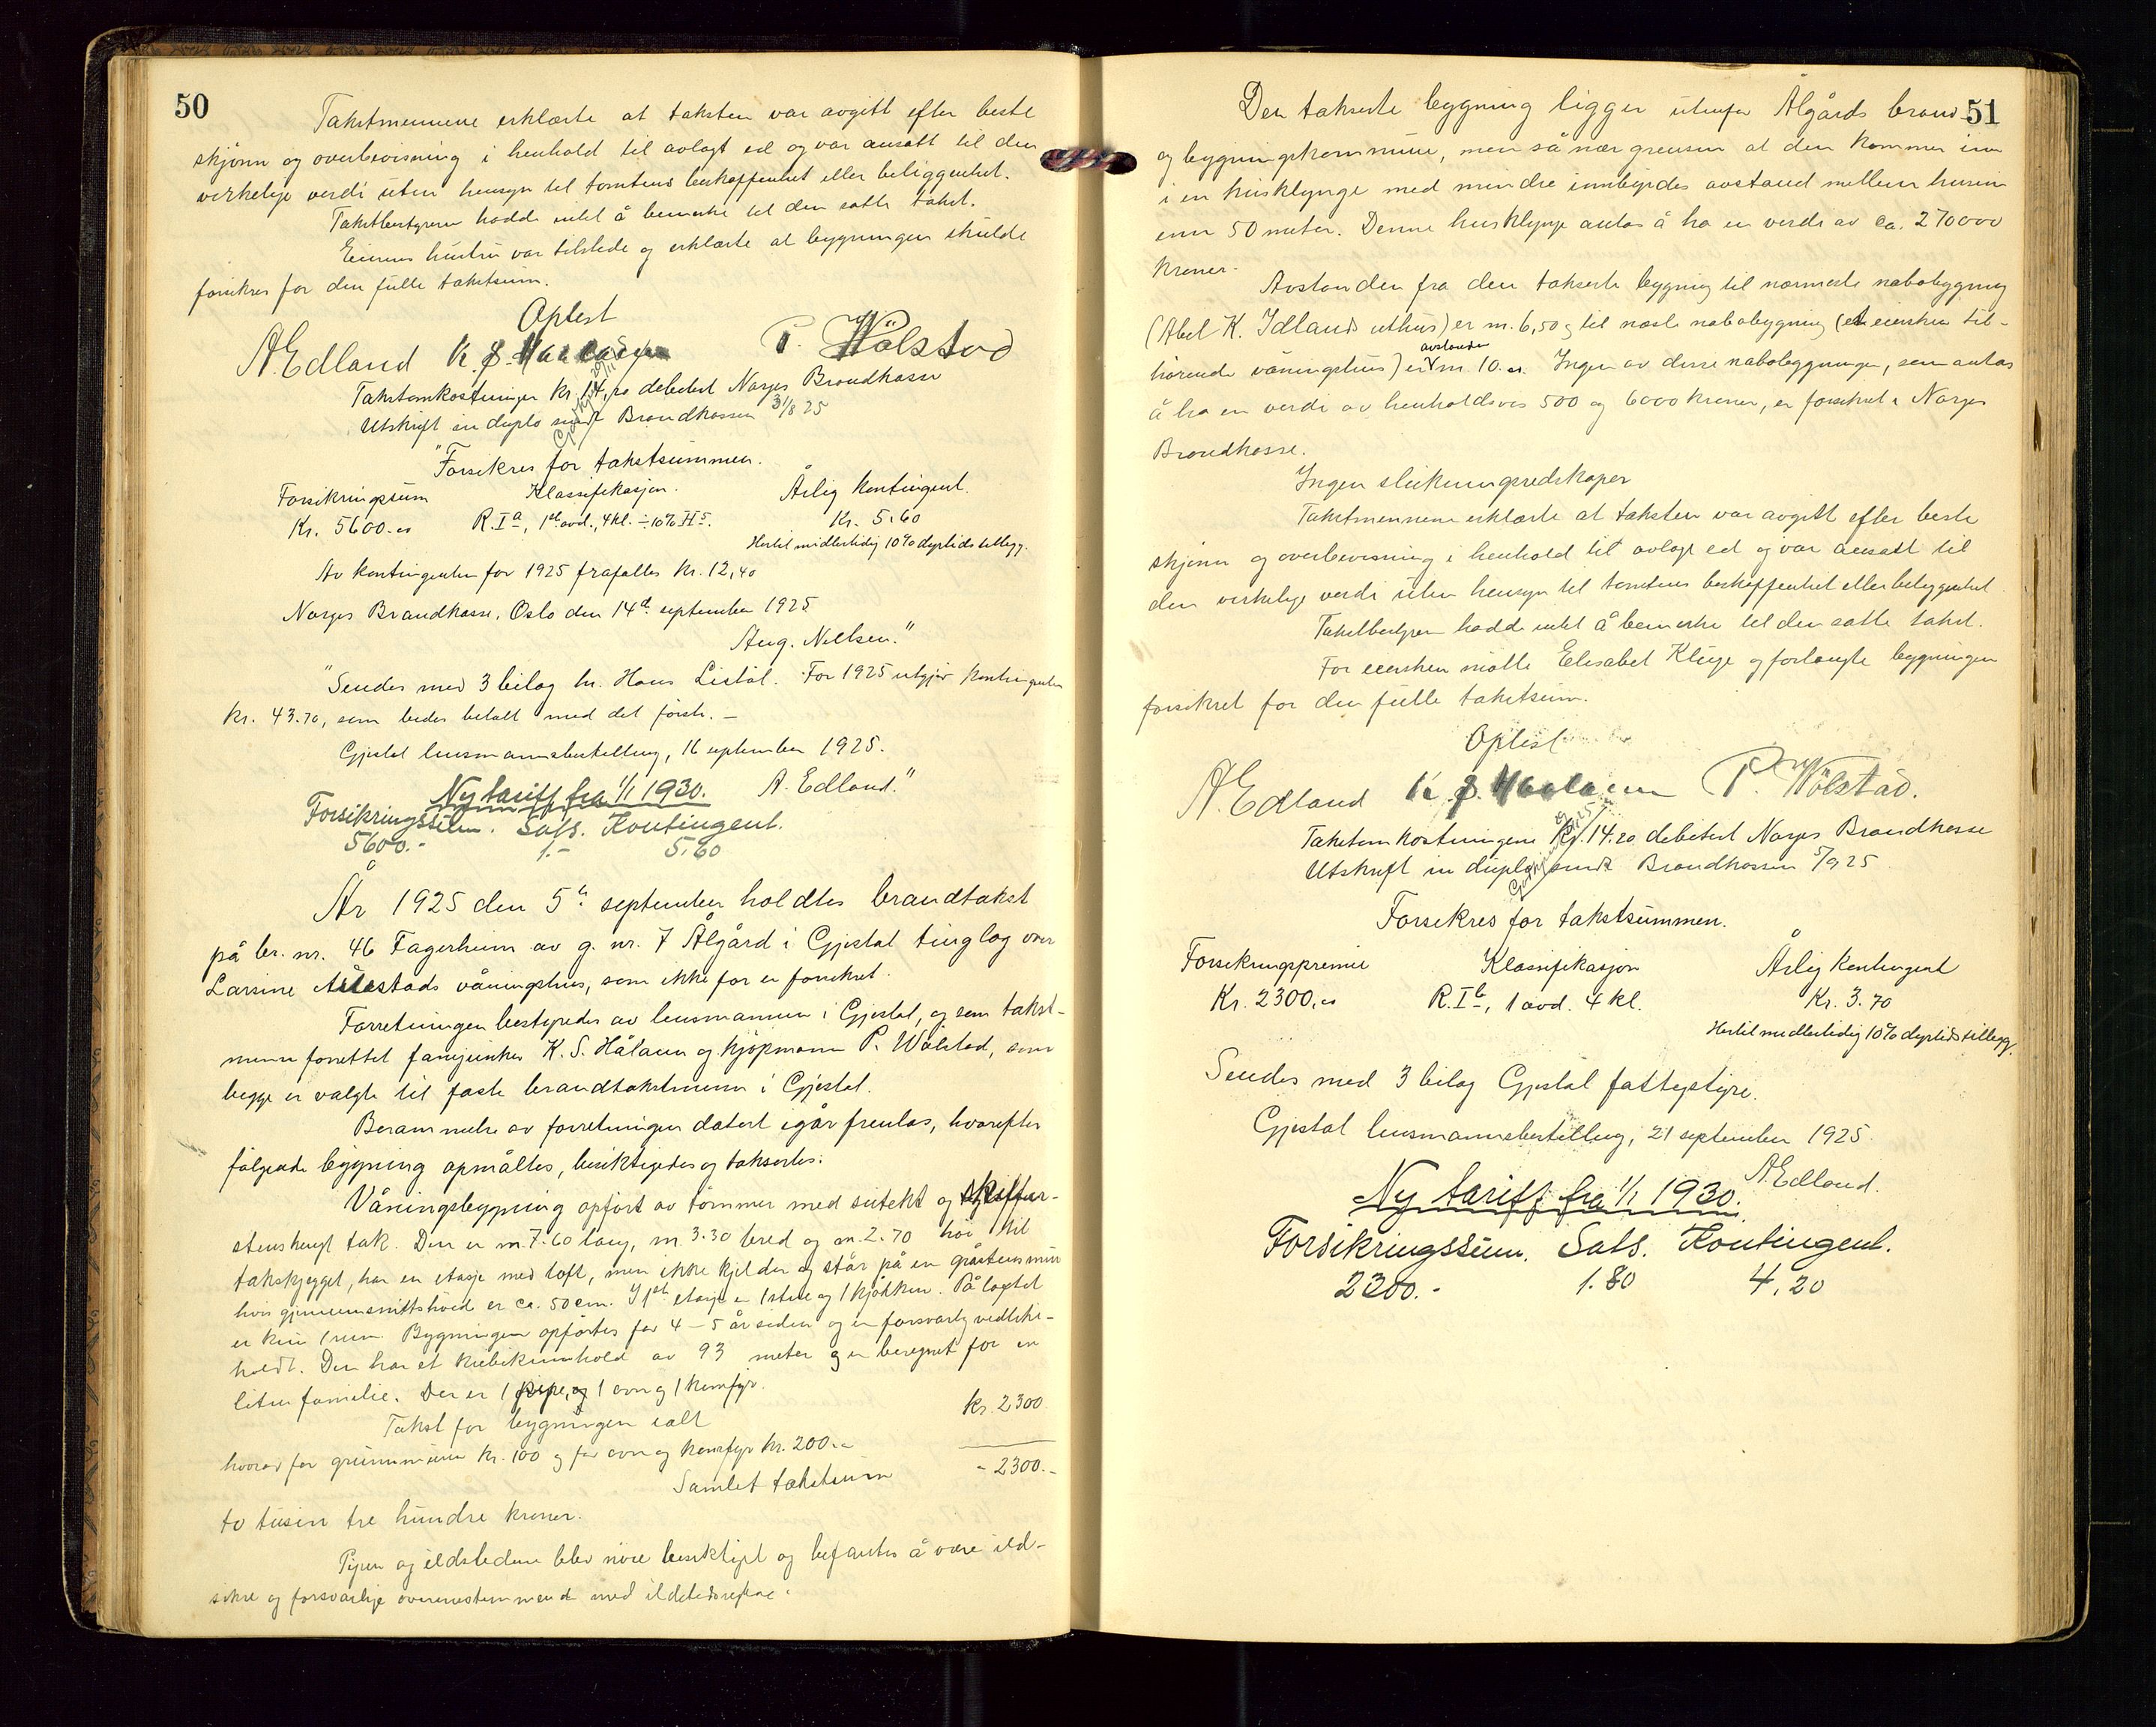 50
Takstmennene erklærte at taksten var avgitt efter beste
skjønn og overbevisning i henhold til avlagt ed og var ansatt til den
virkelige verdi uten hensyn til tomtens beskaffenhet eller beliggenhet.
Takstbestyreren hadde intet å bemerke til den satte takst.
Eierens hustru var tilstede og erklærte at bygningen skulde
forsikres for den fulle takstsum.
Oplest
A. Edland K. S. Haalann P. Wölstad
Takstomkostninger kr. 14,20 debitert Norges Brandkasse
Utskrift in duplo sendt Brandkassen 31/8 25
"Forsikres for takstsummen.
Forsikringssum Klassifikasjon. Årlig kontingent.
Kr. 5600.00 R. Iª, 1ste avd., 4 kl. ÷ 10% Hs. Kr. 5.60
Hertil midlertidig 10% dyrtidstillegg.
Av kontingenten for 1925 frafalles kr. 12,40
Norges Brandkasse, Oslo den 14de september 1925
Aug. Nilsen."
"Sendes med 3 bilag hr. Hans Listøl. For 1925 utgjør kontingenten
kr. 43.70, som bedes betalt med det første. –
Gjestal lensmannsbestilling, 16 september 1925.
A. Edland."
Ny tariff fra 1/1 1930.
Forsikringssum. Sats. Kontingent.
5600.- 1.- 5,60
År 1925 den 5te september holdtes brandtakst
på br. nr. 46 Fagerheim av g. nr. 7 Ålgård i Gjestal tinglag over
Larsine våningshus, som ikke før er forsikret.
Forretningen bestyredes av lensmannen i Gjestal, og som takst-
menn forrettet fanejunker K. S. Hålann og kjøpmann P. Wölstad, som
begge er valgte til faste brandtakstmenn i Gjestal.
Berammelse av forretningen datert igår fremlas, hvorefter
følgende bygning opmåltes, besiktigedes og taksertes:
Våningsbygning opført av tømmer med sutekt og skiffer-
stenshengt tak. Den er m. 7.60 lang, m. 3.30 bred og m. 2.70 høi til
takskjegget, har en etasje med loft, men ikke kjelder og står på en gråstensmur
hvis gjennemsnittshøid er ca. 50 cm. I 1ste etasje er 1 stue og 1 kjøkken. På loftet
er kun 1 rum. Bygningen opførtes for 4 – 5 år siden og er forsvarlig vedlike-
holdt. Den har et kubikinnhold av 93 meter og er beregnet for en
liten familie. Der er 1 pipe, og 1 ovn og 1 komfyr.
Takst for bygningen ialt kr. 2300
hvorav for grunnmuren kr. 100 og for ovn og komfyr kr. 200.00
Samlet takstsum - 2300.-
to tusin tre hundre kroner.
Pipen og ildstedene blev nøie besiktiget og befantes å være ild-
sikre og forsvarlige overensstemmende med ildstedsreglene.
51
Den takserte bygning ligger utenfor Ålgårds brand-
og bygningskommune, men så nær grensen at den kommer inn
i en husklynge med mindre innbyrdes avstand mellem husene
enn 50 meter. Denne husklynge antas å ha en verdi av ca. 270000
kroner.
Avstanden fra den takserte bygning til nærmeste nabobygning
(Abel K. Idlands uthus) er m. 6,50 og til næste nabobygning (et eiersken til-
avstanden
hørende våningshus) er m. 10.00. Ingen av disse nabobygninger, som antas
å ha en verdi av henholdsvis 500 og 6000 kroner, er forsikret i Norges
Brandkasse.
Ingen slukningsredskaper
Takstmennene erklærte at taksten var avgitt efter beste
skjønn og overbevisning i henhold til avlagt ed og var ansatt til
den virkelige verdi uten hensyn til tomtens beskaffenhet eller beliggenhet
Takstbestyreren hadde intet å bemerke til den satte takst.
For eiersken møtte Elisabet Kluge og forlangte bygningen
forsikret for den fulle takstsum.
Oplest
A. Edland K. S. Haalann P. Wölstad.
Takstomkostningene kr. 14.20 debitert Norges Brandkasse
Utskrift in duplo sendt Brandkassen 5/9 25
Forsikres for takstsummen.
Forsikringspremie Klassifikasjon Årlig kontingent
Kr. 2300,00 R. Ib, 1 avd. 4 kl. Kr. 3.70
Hertil midlertidig 10% dyrtidstillegg.
Sendes med 3 bilag Gjestal fattigstyre.
Gjestal lensmannsbestilling, 21 september 1925.
A. Edland.
Ny tariff fra 1/1 1930.
Forsikringssum. Sats. Kontingent.
2300.- 1.80 4,20